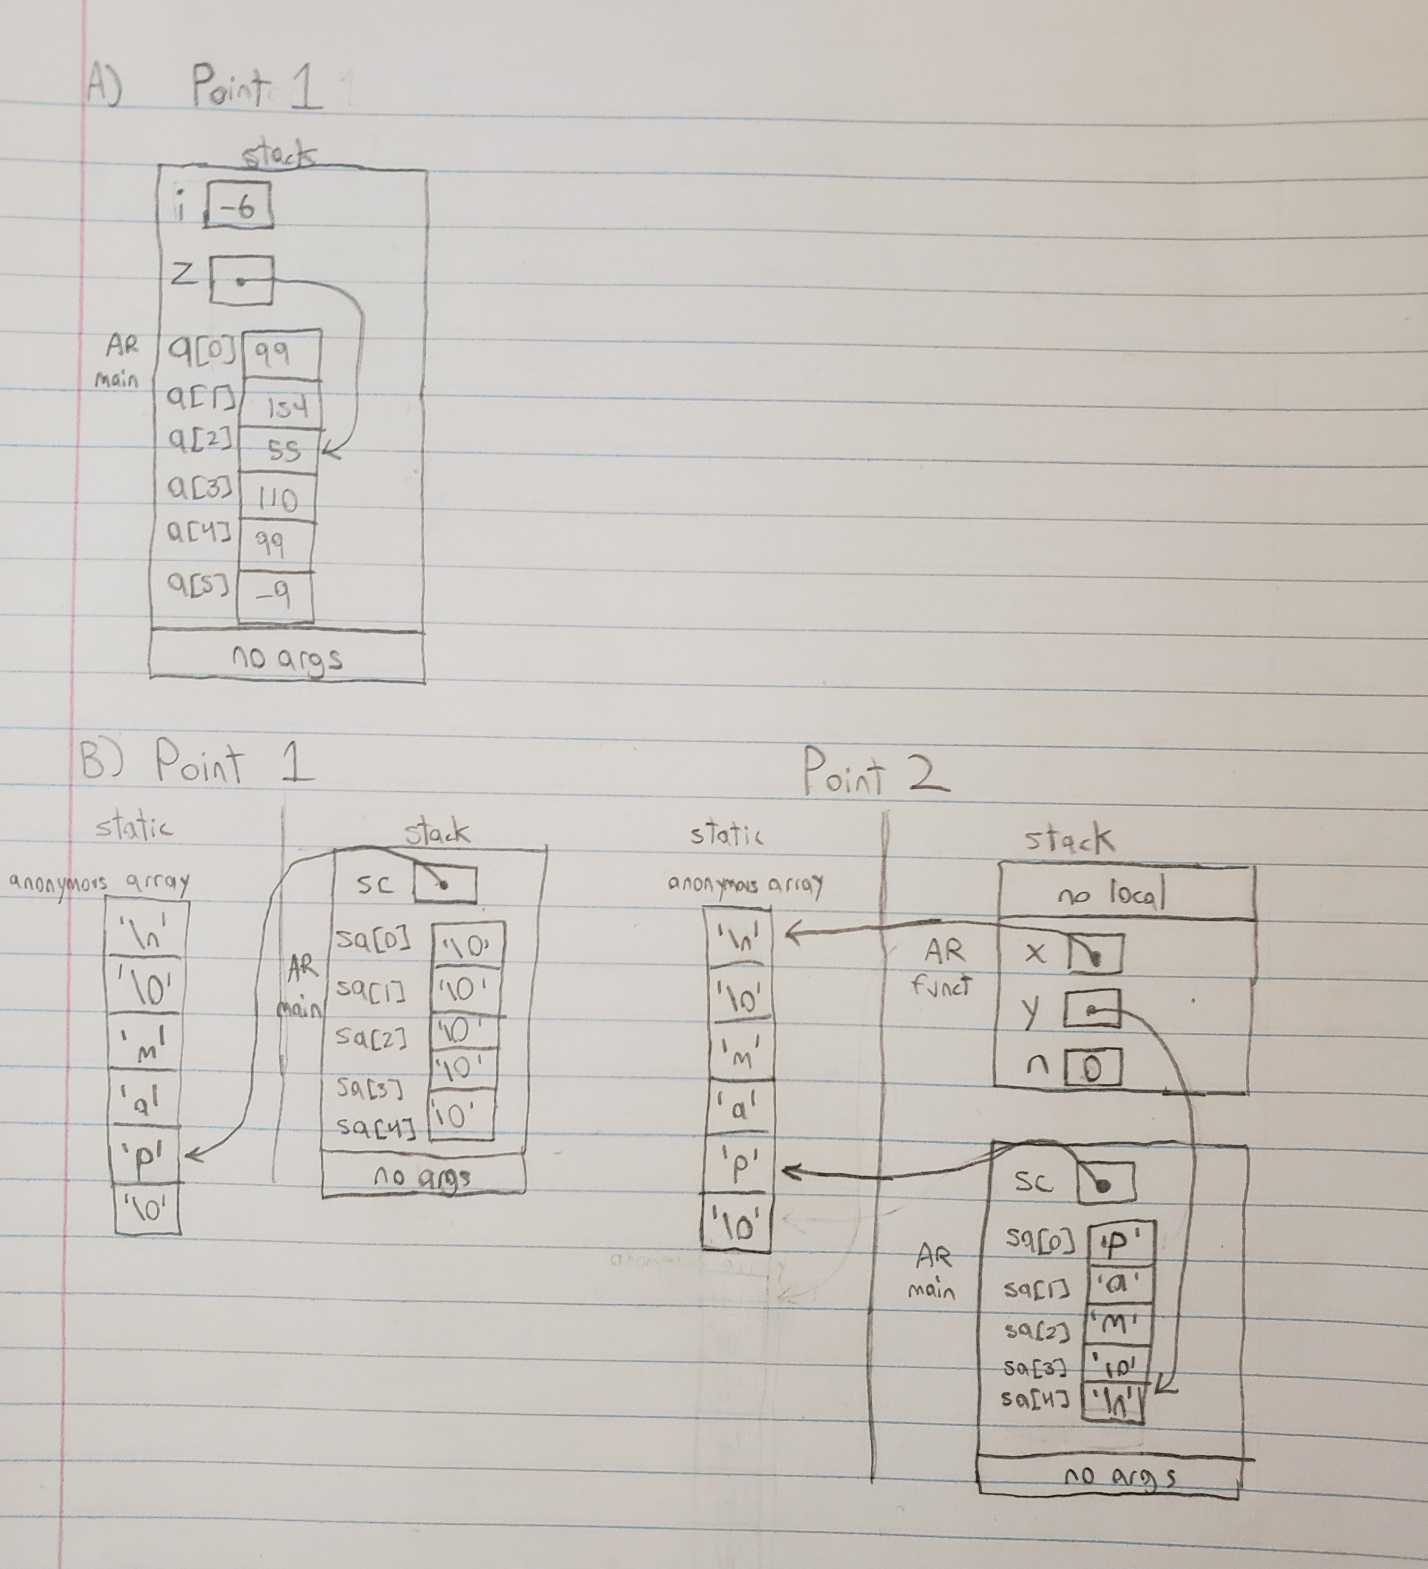 A) Point 1
stack
i -6
z
AR
main
a[0] 99
a[1] 154
a[2] 55
a[3] 110
a[4] 99
a[5] -9
no args
B) Point 1
static
anonymous array
'\n'
'\0'
'm'
'a'
'p'
'\0'
stack
sc
AR
main
sa[0] '\0'
sa[1] '\0'
sa[2] '\0'
sa[3] '\0'
sa[4] '\0'
no args
Point 2
static
anonymous array
'\n'
'\0'
'm'
'a'
'p'
'\0'
stack
no local
AR
funct
x
y
n 0
AR
main
sc
sa[0] 'p'
sa[1] 'a'
sa[2] 'm'
sa[3] '\0'
sa[4] '\n'
no args